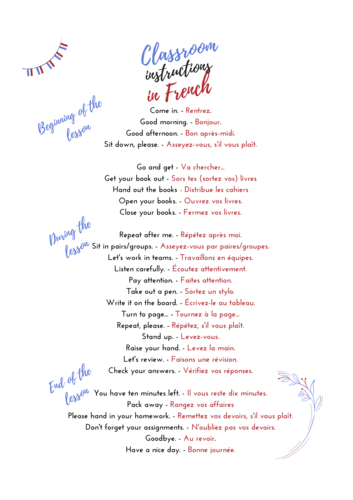 Classroom
instructions
in French
Beginning of the
lesson
Come in. - Rentrez.
Good morning. - Bonjour.
Good afternoon. - Bon après-midi.
Sit down, please. - Asseyez-vous, s'il vous plaît.
Go and get - Va chercher...
Get your book out - Sors tes (sortez vos) livres
Hand out the books - Distribue les cahiers
Open your books. - Ouvrez vos livres.
Close your books. - Fermez vos livres.
During the
lesson
Repeat after me. - Répétez après moi.
Sit in pairs/groups. - Asseyez-vous par paires/groupes.
Let's work in teams. - Travaillons en équipes.
Listen carefully. - Écoutez attentivement.
Pay attention. - Faites attention.
Take out a pen. - Sortez un stylo.
Write it on the board. - Écrivez-le au tableau.
Turn to page... - Tournez à la page...
Repeat, please. - Répétez, s'il vous plaît.
Stand up. - Levez-vous.
Raise your hand. - Levez la main.
Let's review. - Faisons une révision.
Check your answers. - Vérifiez vos réponses.
End of the
lesson
You have ten minutes left. - Il vous reste dix minutes.
Pack away - Rangez vos affaires
Please hand in your homework. - Remettez vos devoirs, s'il vous plaît.
Don't forget your assignments. - N'oubliez pas vos devoirs.
Goodbye. - Au revoir.
Have a nice day. - Bonne journée.